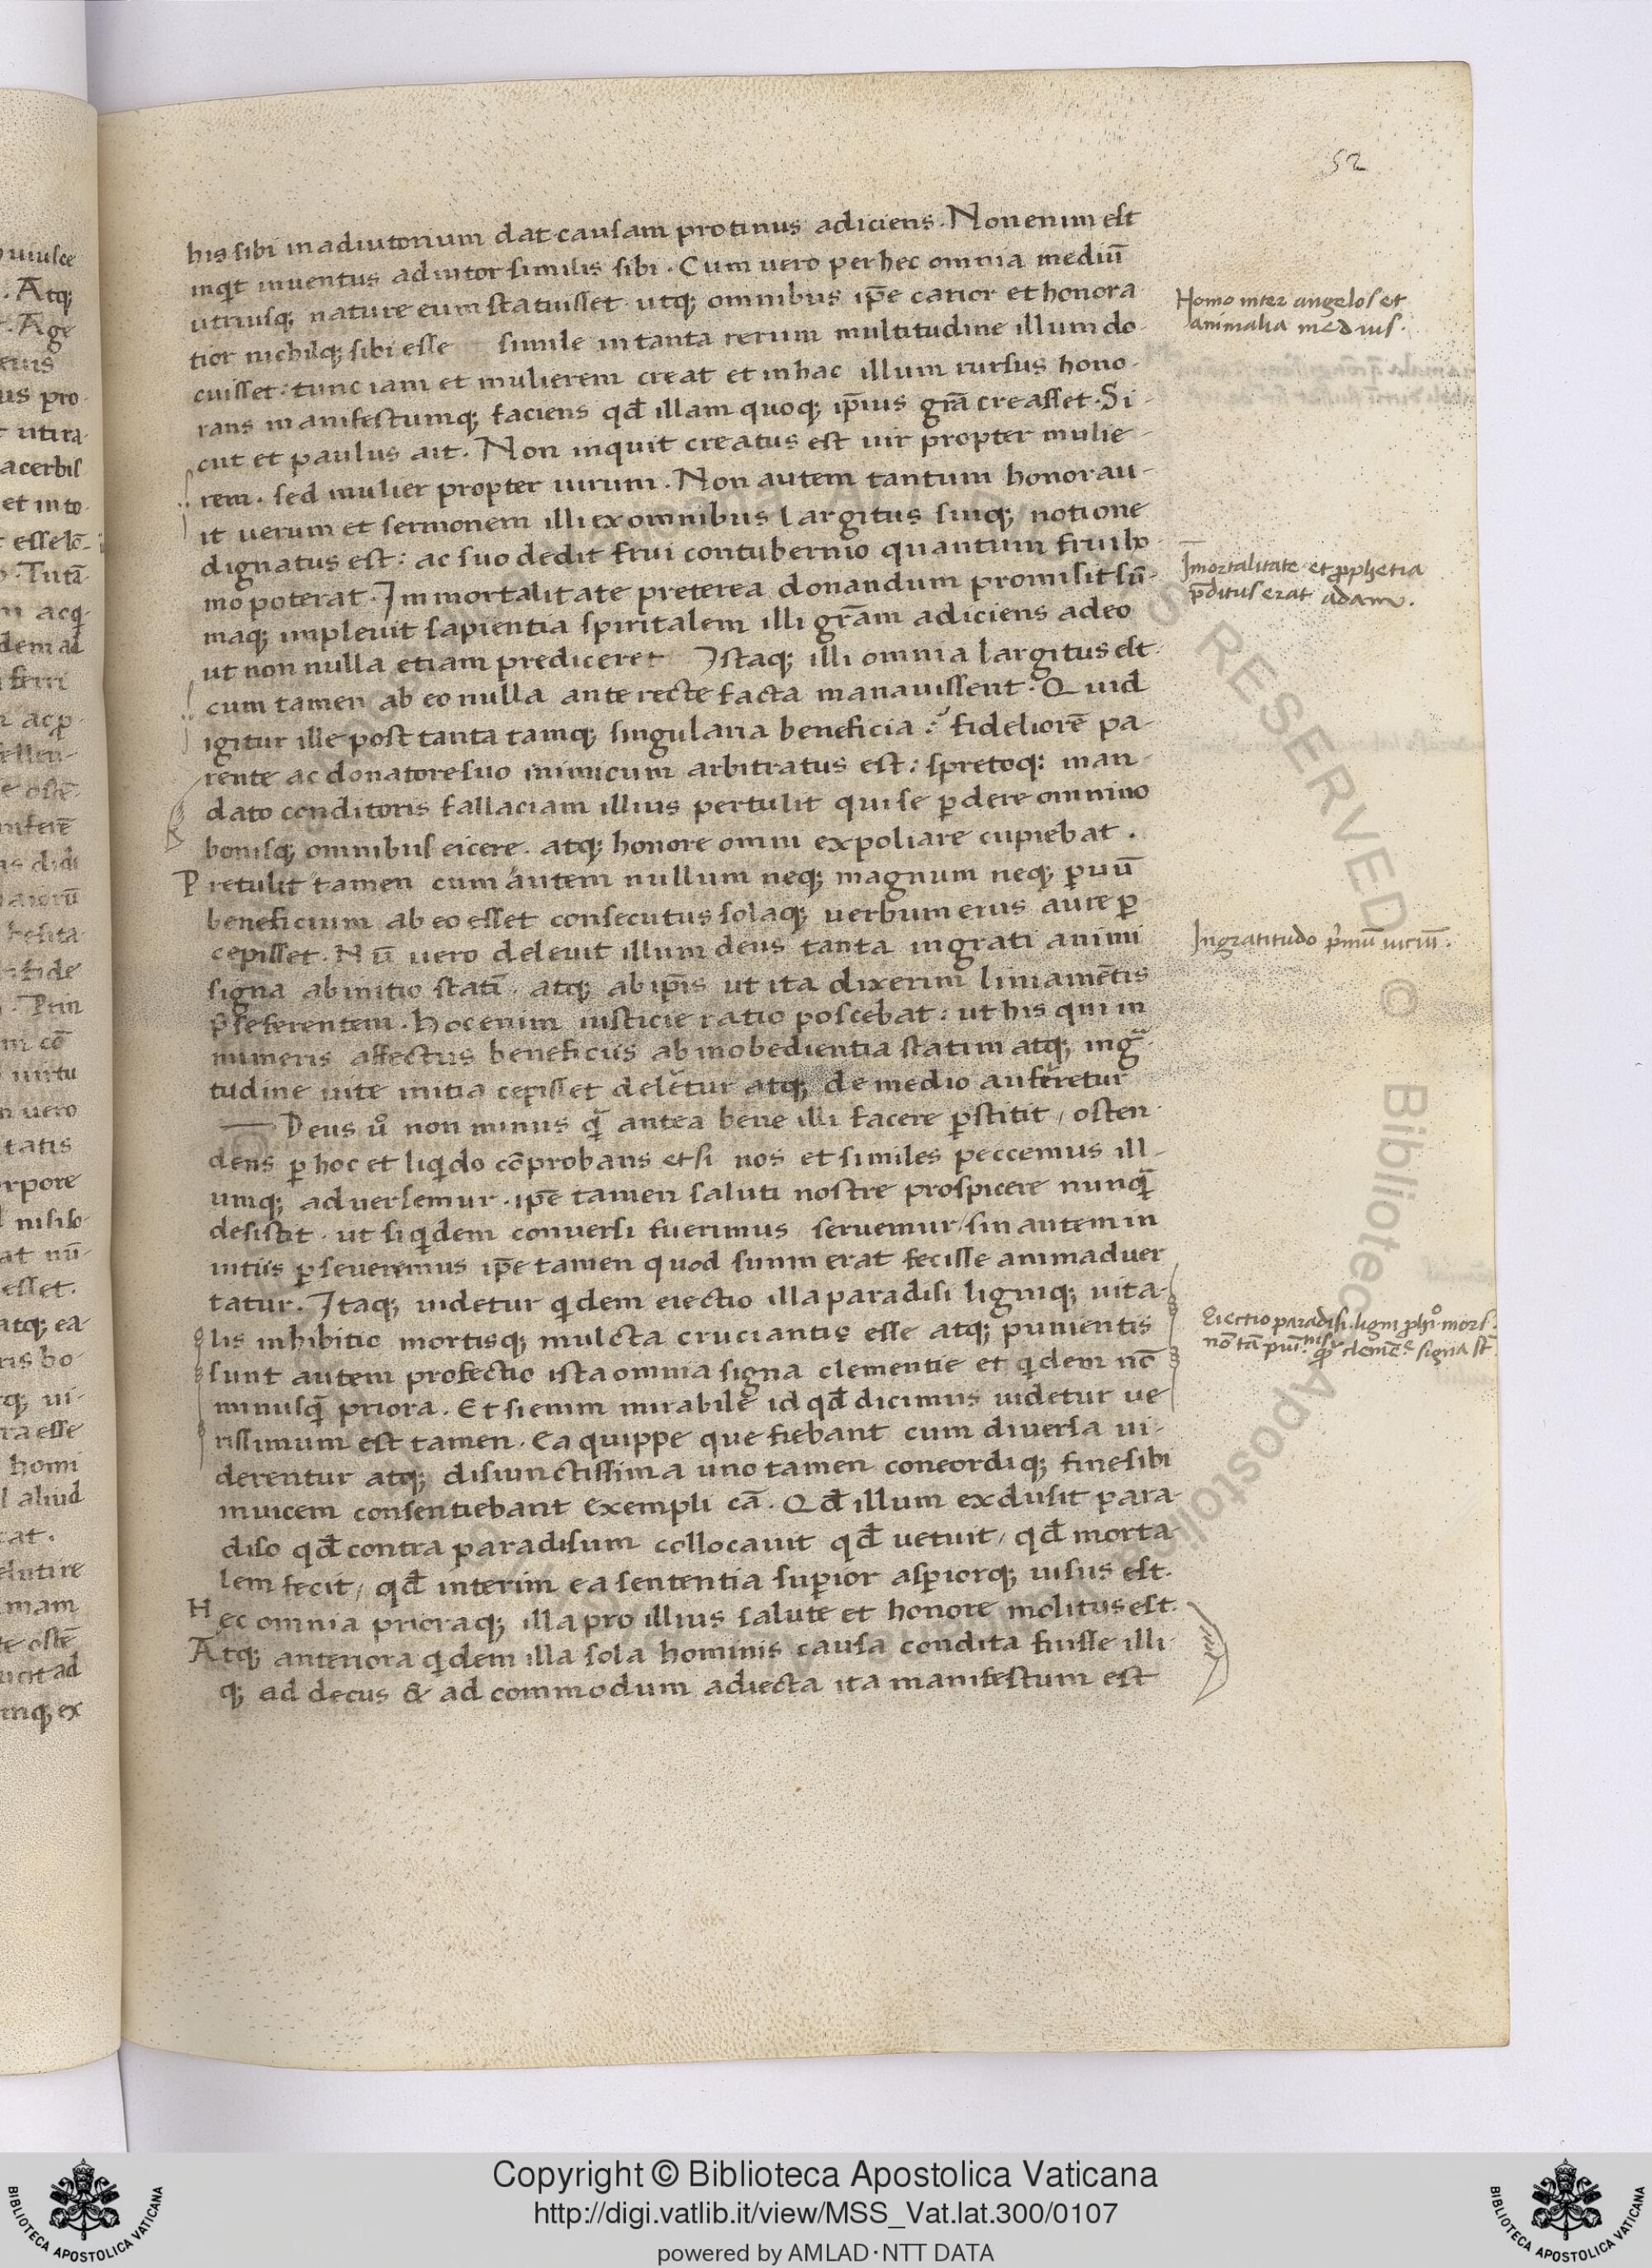 52
his sibi in adiutorium dat causam protinus adiciens. Non enim est
inqͥt inuentus adiutor similis sibi. Cum uero per hec omnia mediū
utriusq; nature eum statuisset utq; omnibus ip̄e carior et honora
tior nichilq; sibi esse simile in tanta rerum multitudine illum do-
cuisset: tunc iam et mulierem creat et in hac illum rursus hono-
rans manifestumq; faciens qd̄ illam quoq; ip̄ius grā creasset. Si-
cut et paulus ait. Non inquit creatus est uir propter mulie-
rem. sed mulier propter uirum. Non autem tantum honorau-
it uerum et sermonem illi ex omnibus largitus suiq; notione
dignatus est: ac suo dedit frui contubernio quantum frui ho-
mo poterat. Immortalitate preterea donandum promisit sū-
maq; impleuit sapientia spiritalem illi grām adiciens adeo
ut non nulla etiam prediceret Istaq; illi omnia largitus est
cum tamen ab eo nulla ante recte facta manauissent. Quid
igitur ille post tanta tamq; singularia beneficia? fideliorē pa-
rente ac donatore suo inimicum arbitratus est: spretoq; man-
dato conditoris fallaciam illius pertulit qui se p̱dere omnino
bonisq; omnibus eicere. atq; honore omni expoliare cupiebat.
Pretulit tamen cum autem nullum neq; magnum neq; p̱uū
beneficium ab eo esset consecutus solaq; uerbum eius aure p̱-
cepisset. Nū uero deleuit illum deus tanta ingrati animi
signa ab initio statī. atq; ab ip̄is ut ita dixerim liniamētis
p̄seferentem. hoc enim iusticie ratio poscebat: ut his qui in
numeris affectus beneficiis ab inobedientia statim atq; ingͣ-
tudine uite initia cepisset deletur atq; de medio auferetur
Deus uͦ non minus qͣ̄ antea bene illi facere p̱stitit, osten-
dens p̱ hoc et liqͥdo cōprobans etsi nos et similes peccemus ill-
umq; aduersemur. ip̄e tamen saluti nostre prospicere nunqͣ̄
desistit. ut siqͥdem conuersi fuerimus seruemur, sin autem in
uitiis p̱seueremus ip̄e tamen quod suum erat fecisse animaduer
tatur. Itaq; uidetur qͥdem eiectio illa paradisi ligniq; uita-
lis inhibitio mortisq; mulcta cruciantis esse atq; punientis
sunt autem profectio ista omnia signa clementie et qͥdem nō
minusqͣ̄ priora. Et si enim mirabile id qd̄ dicimus uidetur ue
rissimum est tamen. Ea quippe que fiebant cum diuersa ui-
derentur atq; disiunctissima uno tamen concordiq; fine sibi
inuicem consentiebant exempli cā. Qd̄ illum exclusit para-
diso qd̄ contra paradisum collocauit qd̄ uetuit, qd̄ morta-
lem fecit, qd̄ interim ea sententia sup̱ior asp̱iorq; uisus est.
Hec omnia prioraq; illa pro illius salute et honore molitus est.
Atq; anteriora qͥdem illa sola hominis causa condita fuisse illi-
q; ad decus & ad commodum adiecta ita manifestum est
Homo inter angelos et
animalia medius.
Īmortalitate et p̱phetia
p̄ditus erat adam.
Ingratitudo pͥmū uiciū.
Eiectio paradisi. ligni phiͦ. mors.
nō tā puniͭⁱˢ qͣ̄ clemēͤ signa st̄
Copyright © Biblioteca Apostolica Vaticana
http://digi.vatlib.it/view/MSS_Vat.lat.300/0107
powered by AMLAD·NTT DATA
BIBLIOTECA APOSTOLICA VATICANA
BIBLIOTECA APOSTOLICA VATICANA